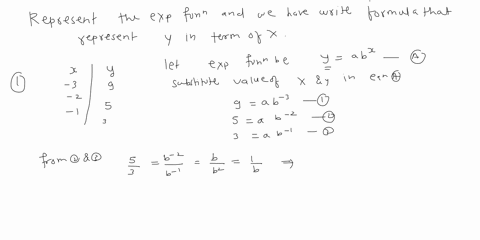 Represent the exp funⁿ and we have write formula that
represent y in term of x.
① x | y
-3 | 9
-2 | 5
-1 | 3
let exp funⁿ be y = ab^x — Ⓐ
substitute value of x & y in eqn Ⓐ
9 = ab^-3 — ①
5 = a b^-2 — ②
3 = a b^-1 —
from ② &
5/3 = b^-2/b^-1 = b/b² = 1/b ⇒